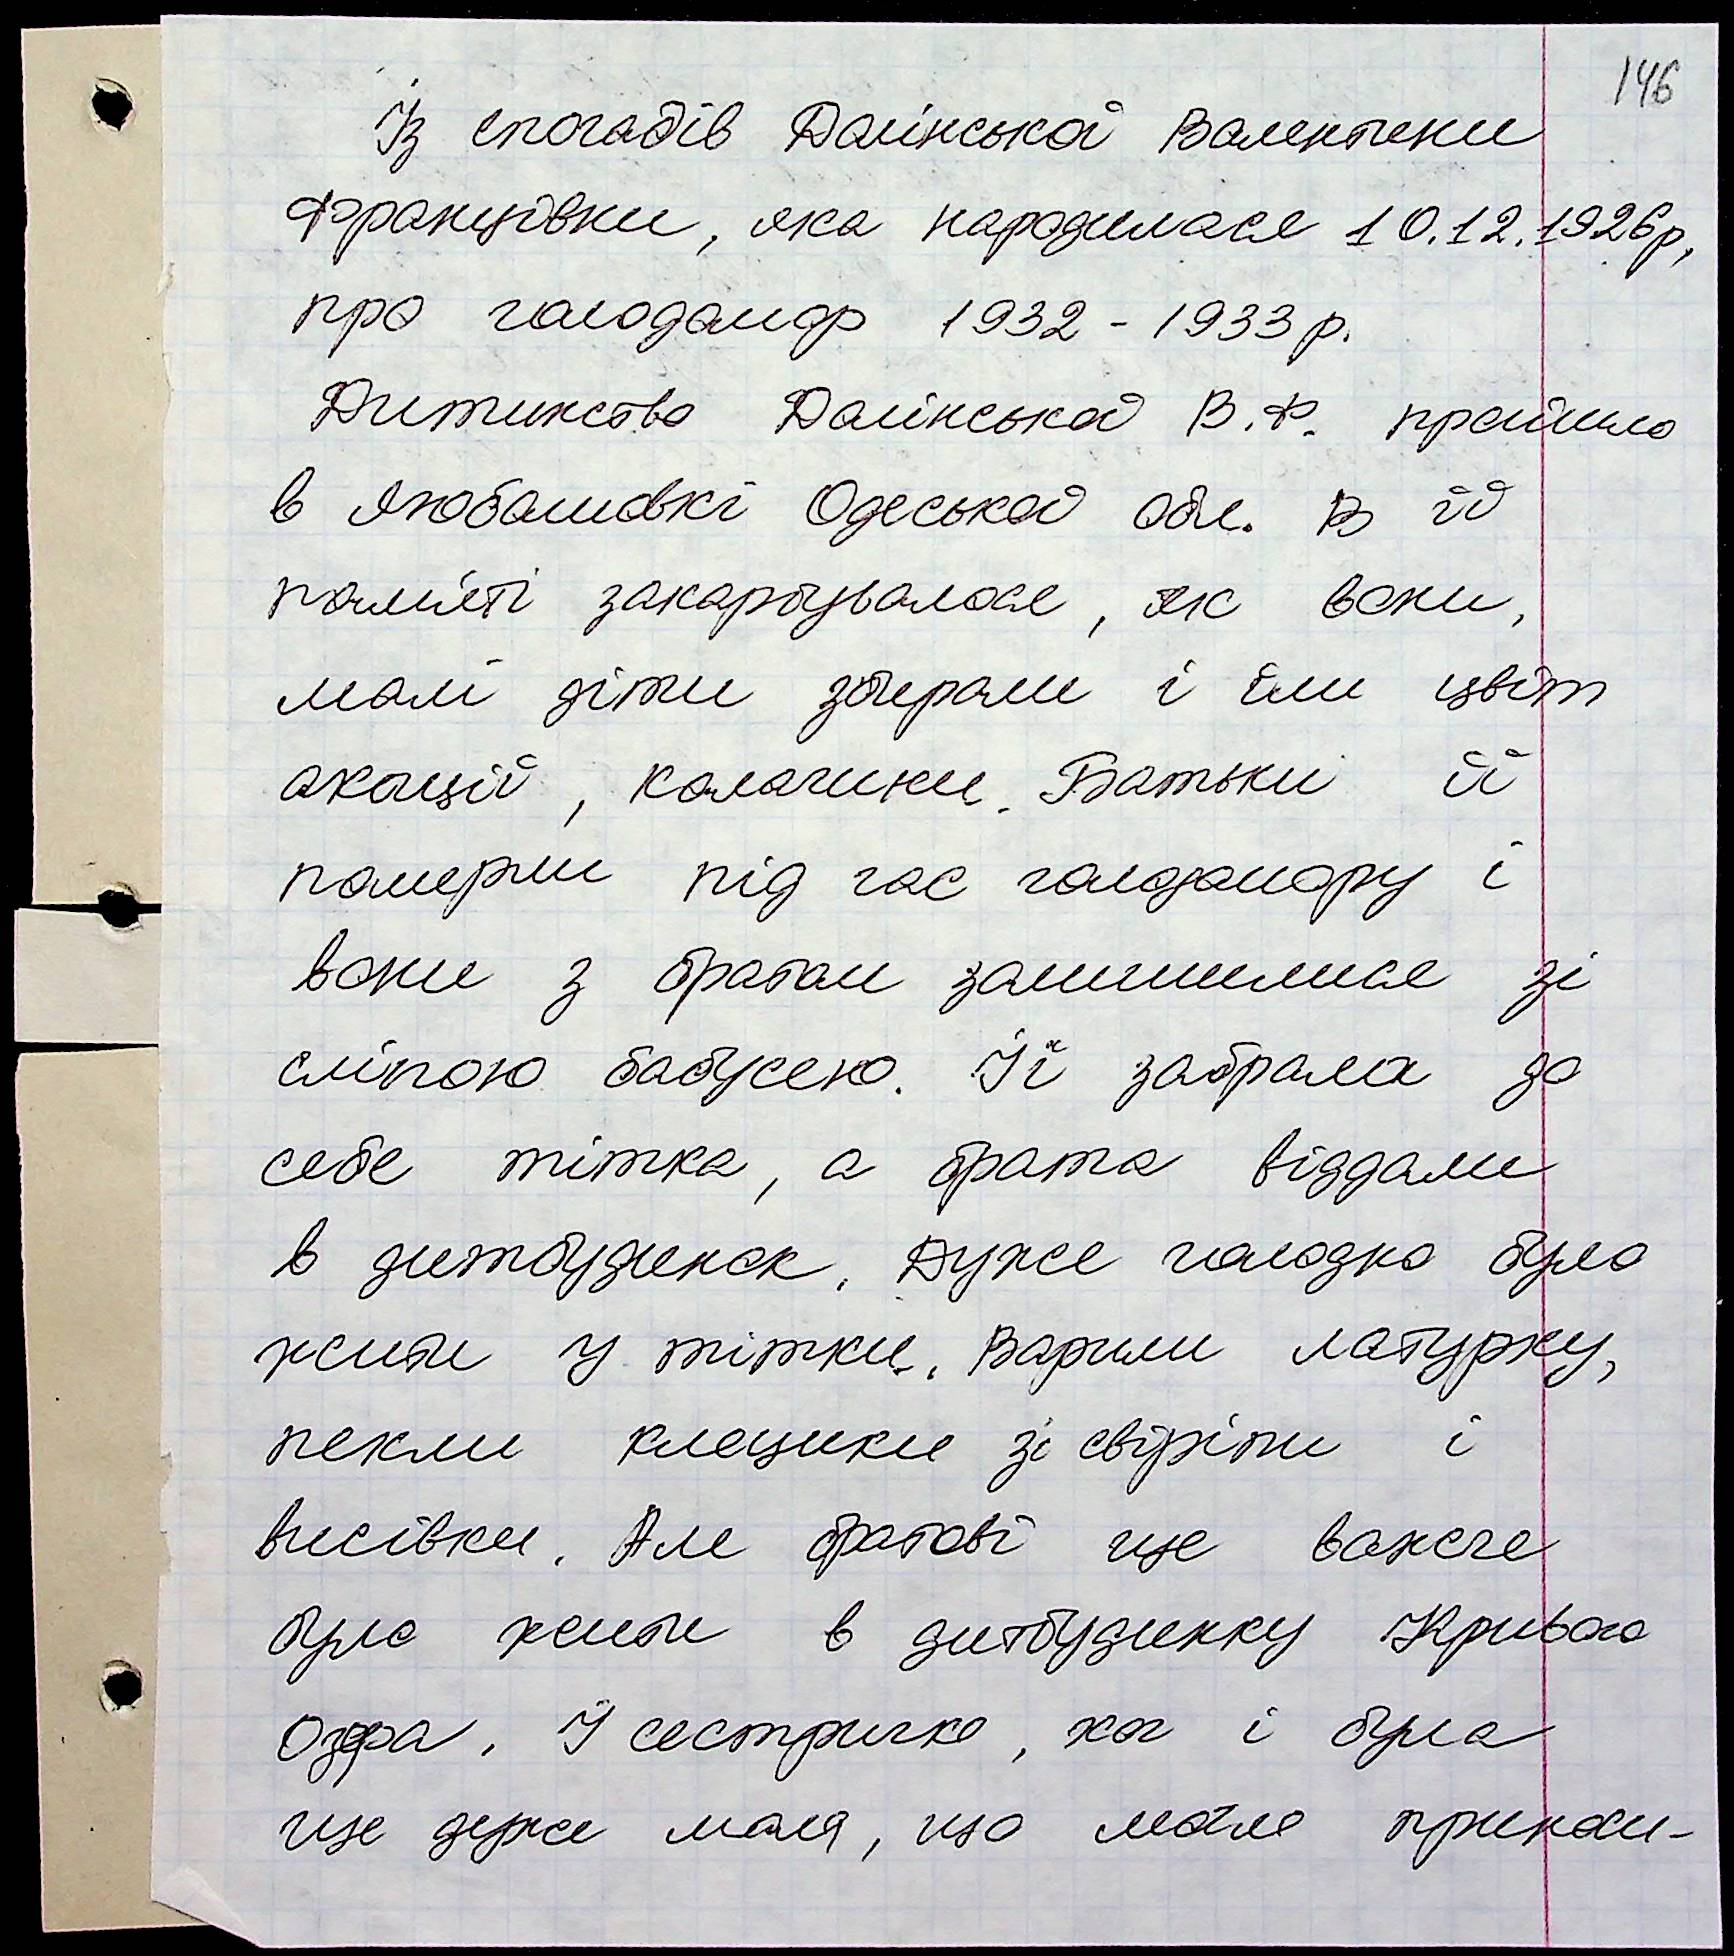 146
Із спогадів Долінської Валентини
Францівни, яка народилася 10.12.1926р,
про голодомор 1932 - 1933 р.
Дитинство Долінської В.Ф. пройшло
в Любашовкі Одеської обл. В її
пам'яті закарбувалося, як вони,
малі діти збирали і їли цвіт
акації, калачики. Батьки її
померли під час голодомору і
вони з братом залишилися зі
сліпою бабусею. Її забрала до
себе тітка, а брата віддали
в дитбудинок. Дуже голодно було
жити у тітки. Варили затурку,
пекли клецики зі свіріпи і
висівки. Але братові ще важче
було жити в дитбудинку Кривого
Озера. І сестричка, хоч і була
ще дуже мала, що могла приноси-